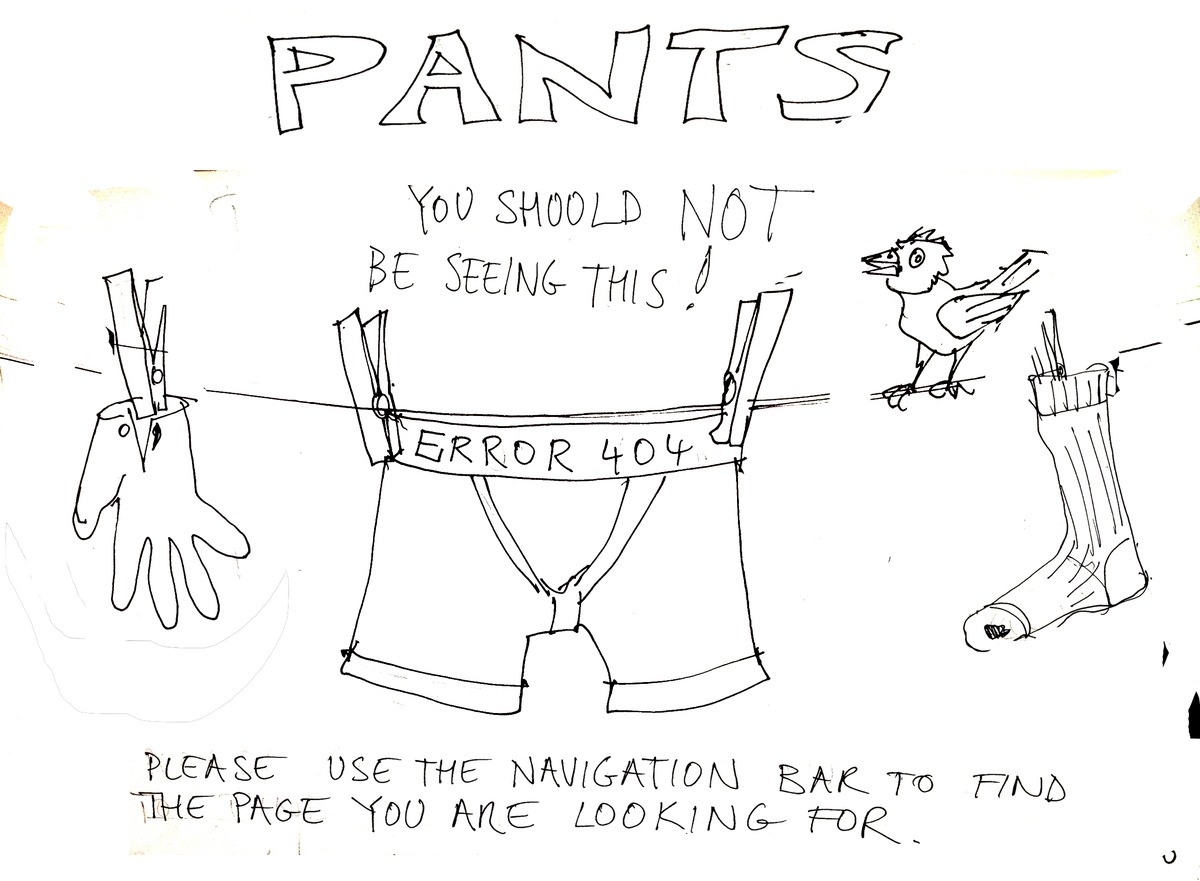 PANTS
YOU SHOULD NOT
BE SEEING THIS!
ERROR 404
PLEASE USE THE NAVIGATION BAR TO FIND
THE PAGE YOU ARE LOOKING FOR.